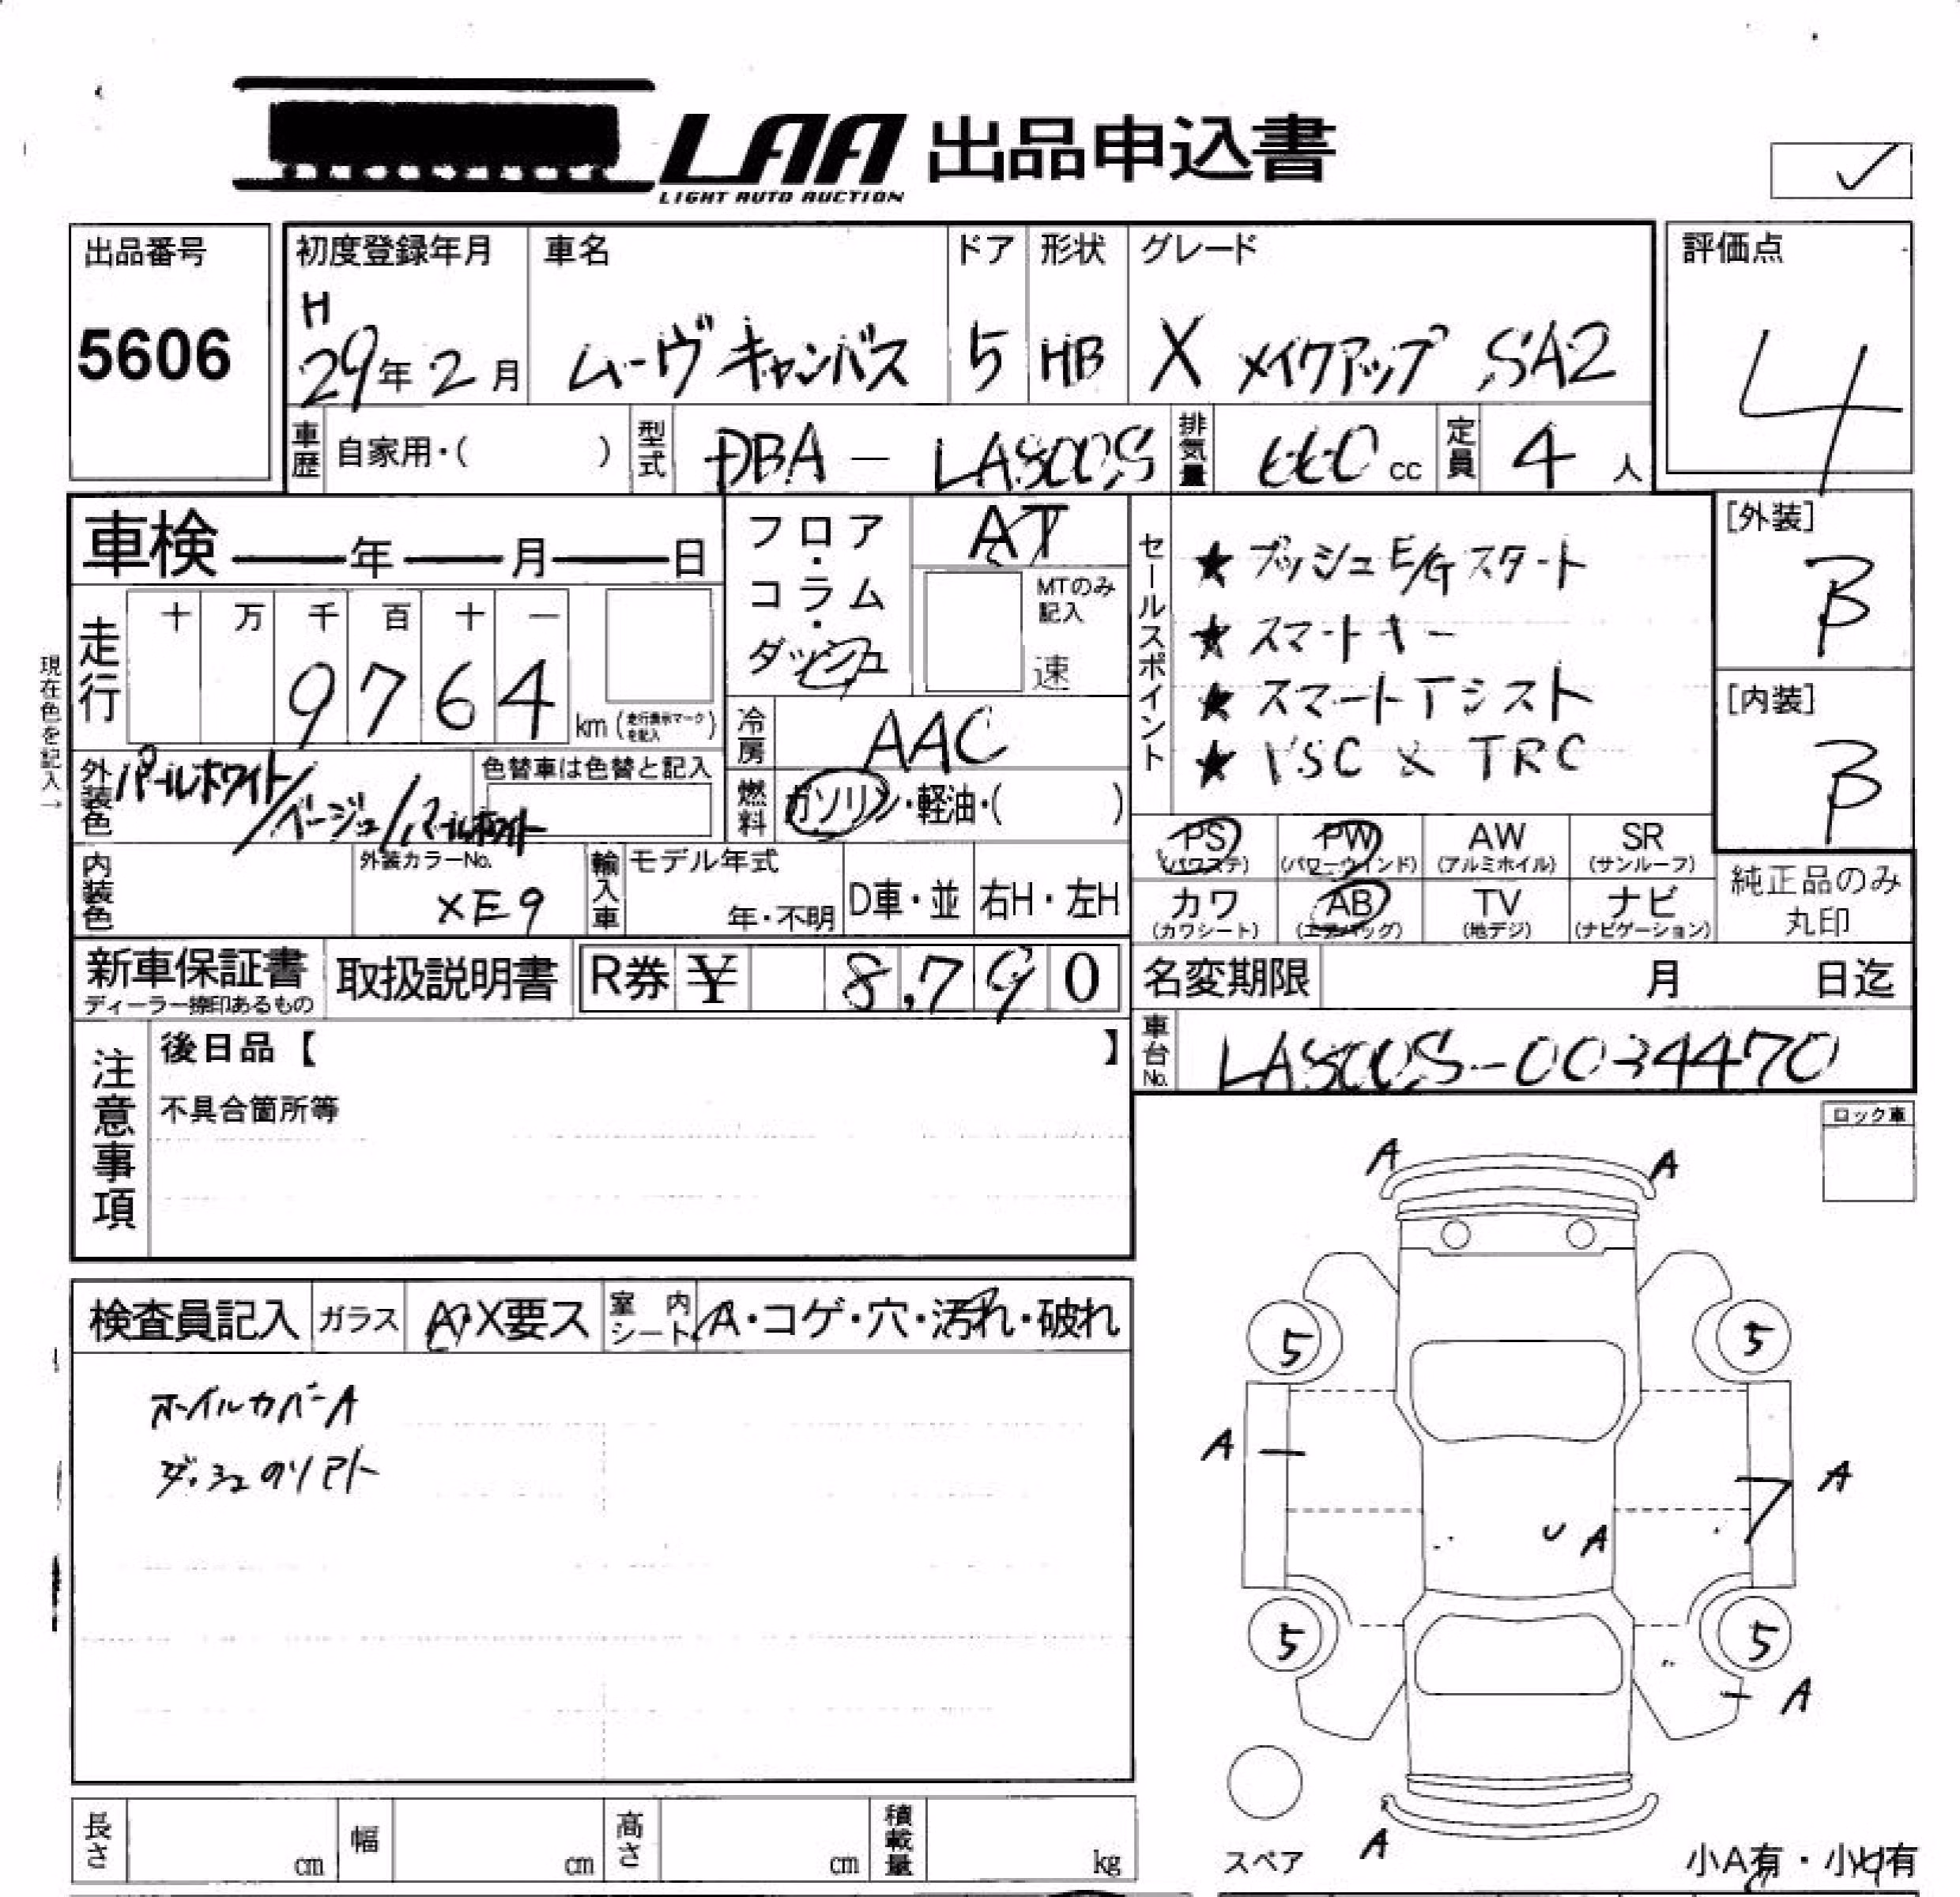 LAA 出品申込書
LIGHT AUTO AUCTION
出品番号
5606
初度登録年月
H
29年2月
車名
ムーヴキャンバス
ドア
5
形状
HB
グレード
X メイクアップ SA2
評価点
4
車歴 自家用・( )
型式 DBA - LA800S
排気量 660 cc
定員 4 人
[外装]
B
[内装]
B
車検 年 月 日
走行
十 万 千 百 十 一
9764
km (走行表示マークを記入)
現在色を記入→
外装色
パールホワイト/ベージュ/パールホワイト
色替車は色替と記入
内装色
外装カラーNo.
XE9
輸入車
モデル年式
年・不明
D車・並
右H・左H
フロア・コラム・ダッシュ
AT
MTのみ記入
速
冷房 AAC
燃料 ガソリン・軽油・( )
セールスポイント
★ プッシュE/Gスタート
★ スマートキー
★ スマートアシスト
★ VSC & TRC
PS (パワステ)
PW (パワーウインド)
AW (アルミホイル)
SR (サンルーフ)
カワ (カワシート)
AB (エアバッグ)
TV (地デジ)
ナビ (ナビゲーション)
純正品のみ丸印
新車保証書
ディーラー捺印あるもの
取扱説明書
R券 ¥ 8,790
名変期限 月 日迄
車台No. LA800S-0034470
注意事項
後日品【 】
不具合箇所等
ロック車
検査員記入
ガラス A・X要ス
室内シート A・コゲ・穴・汚れ・破れ
ホイルカバーA
ダッシュのリアト
A A
5 5
A A
A
5 5
A
A
スペア
小A有・小U有
長さ cm
幅 cm
高さ cm
積載量 kg